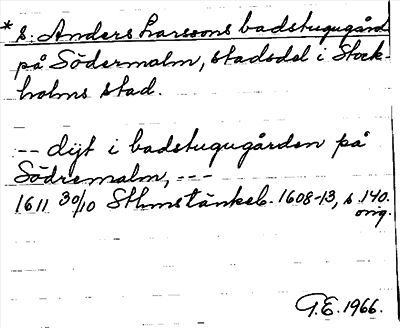 * S: Anders Larssons badstugugård
på Södermalm, stadsdel i Stock-
holms stad.
-- dijt i badstugugården på
Södremalm, ---
1611 30/10 Sthmstänkeb. 1608-13, s. 140.
orig.
G.E. 1966.